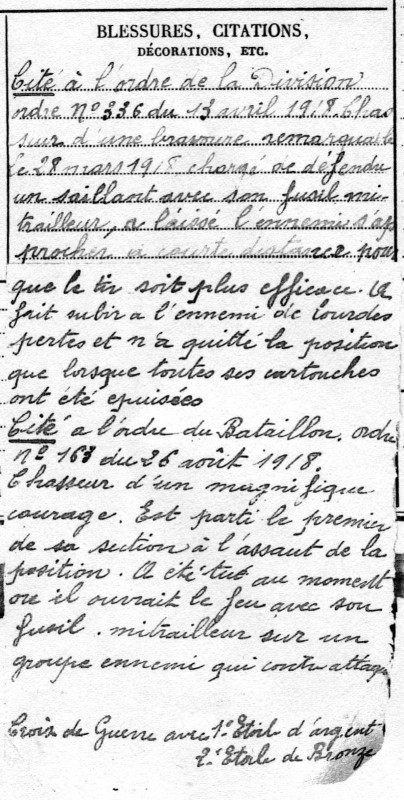 BLESSURES, CITATIONS,
DÉCORATIONS, ETC.
Cité à l'ordre de la Division
ordre N° 336 du 13 avril 1918. Chas
seur d'une bravoure remarquable
Le 28 mars 1918, chargé de défendre
un saillant avec son fusil mi-
trailleur, a laissé l'ennemi s'ap
procher à courte distance pour
que le tir soit plus efficace. A
fait subir a l'ennemi de lourdes
pertes et n'a quitté la position
que lorsque toutes ses cartouches
ont été epuisées
Cité a l'ordre du Bataillon. ordre
n° 163 du 26 août 1918.
Chasseur d'un magnifique
courage. Est parti le premier
de sa section à l'assaut de la
position. A été tué au moment
ou il ouvrait le feu avec son
fusil. mitrailleur sur un
groupe ennemi qui contre attaqu
Croix de Guerre avec 1° Etoile d'argent
2° Etoile de Bronze